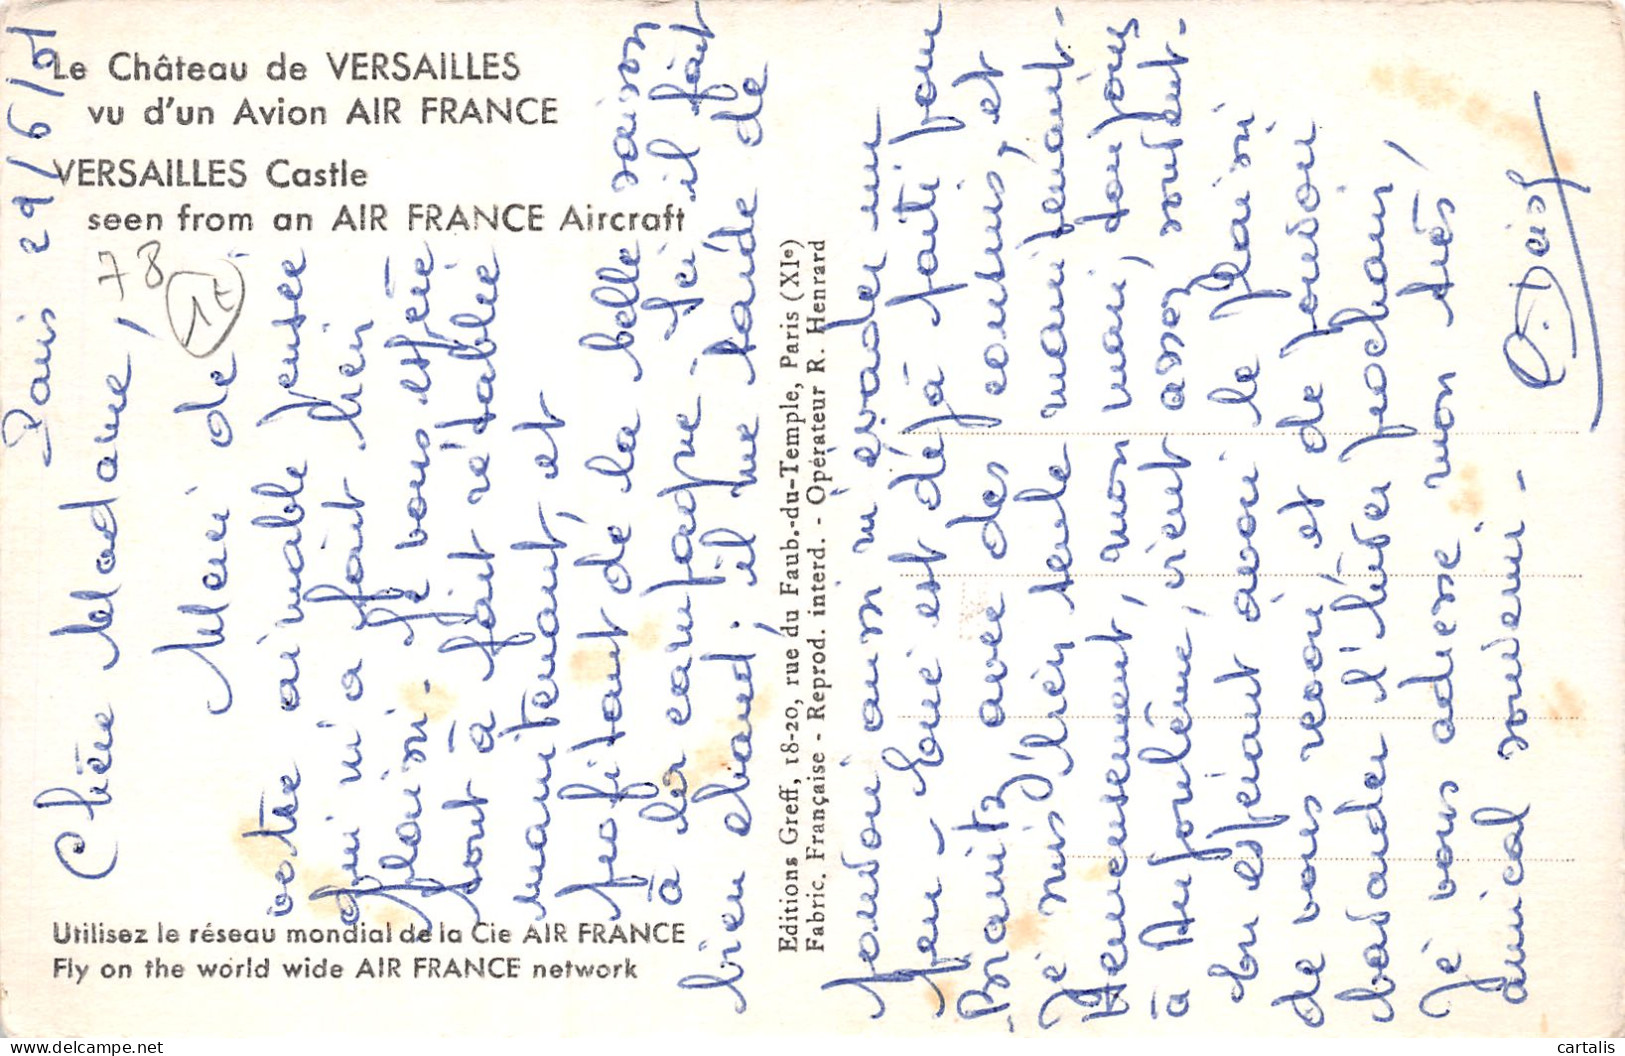 Le Château de VERSAILLES
vu d'un Avion AIR FRANCE
VERSAILLES Castle
seen from an AIR FRANCE Aircraft
78
1€
Paris 29/6/51
Chère Madame,
Merci de
votre aimable pensée
qui m'a fait bien
plaisir. Je vous espère
tout à fait rétablie
maintenant, et
profitant de la belle saison
à la campagne. Ici il fait
bien chaud; il me tarde de
Utilisez le réseau mondial de la Cie AIR FRANCE
Fly on the world wide AIR FRANCE network
Editions Greff, 18-20, rue du Faub.-du-Temple, Paris (XIe)
Fabric. Française - Reprod. interd. - Opérateur R. Henrard
pouvoir aussi m'évader un
peu - est déjà parti pour
Biarritz avec des cousins, et
Je suis bien seule maintenant.
Heureusement, mon mari, toujours
à Angoulême, vient assez souvent.
En espérant avoir le plaisir
de vous revoir et de pouvoir
bavarder l'hiver prochain,
Je vous adresse mon très
amical souvenir.
cartalis